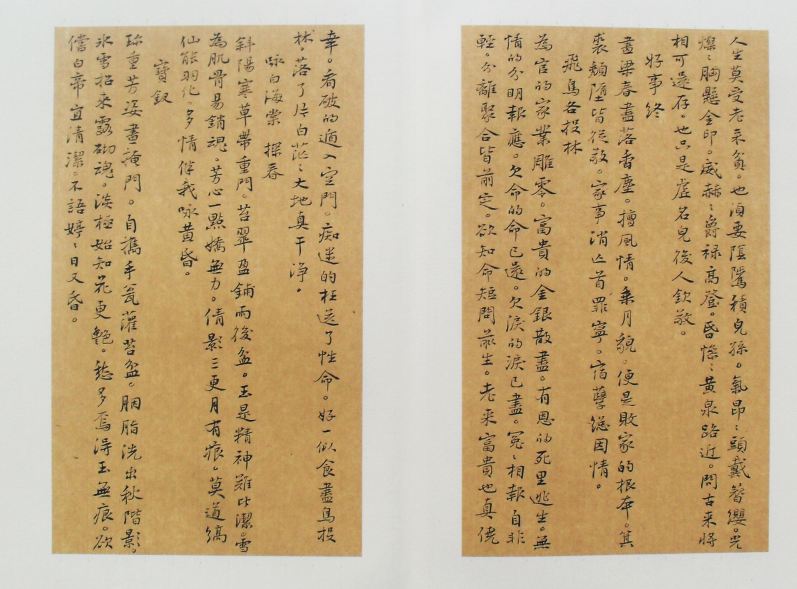 人生莫受老来貧。也須要陰騭積兒孫。氣昂〻頭戴簪纓。光
燦〻胸懸金印。威赫〻爵禄高登。昏惨〻黄泉路近。問古来將
相可還存。也只是虚名兒後人欽敬。
好事終
畫梁春盡落香塵。擅風情。秉月貌。便是敗家的根本。箕
裘頹墮皆從敬。家事消亡首罪寧。宿孽總因情。
飛鳥各投林
為官的家業雕零。富貴的金銀散盡。有恩的死里逃生。無
情的分明報應。欠命的命已還。欠淚的淚已盡。冤〻相報自非
輕。分離聚合皆前定。欲知命短問前生。老来富貴也真僥
幸。看破的遁入空門。痴迷的枉送了性命。好一似食盡鳥投
林。落了片白茫〻大地真干净。
咏白海棠 探春
斜陽寒草帶重門。苔翠盈鋪雨後盆。玉是精神難比潔。雪
為肌骨易銷魂。芳心一點嬌無力。倩影三更月有痕。莫道縞
仙能羽化。多情伴我咏黄昏。
寶釵
珍重芳姿晝掩門。自攜手瓮灌苔盆。胭脂洗出秋階影。
冰雪招來露砌魂。淡極始知花更艷。愁多焉得玉無痕。欲
償白帝宜清潔。不語婷〻日又昏。